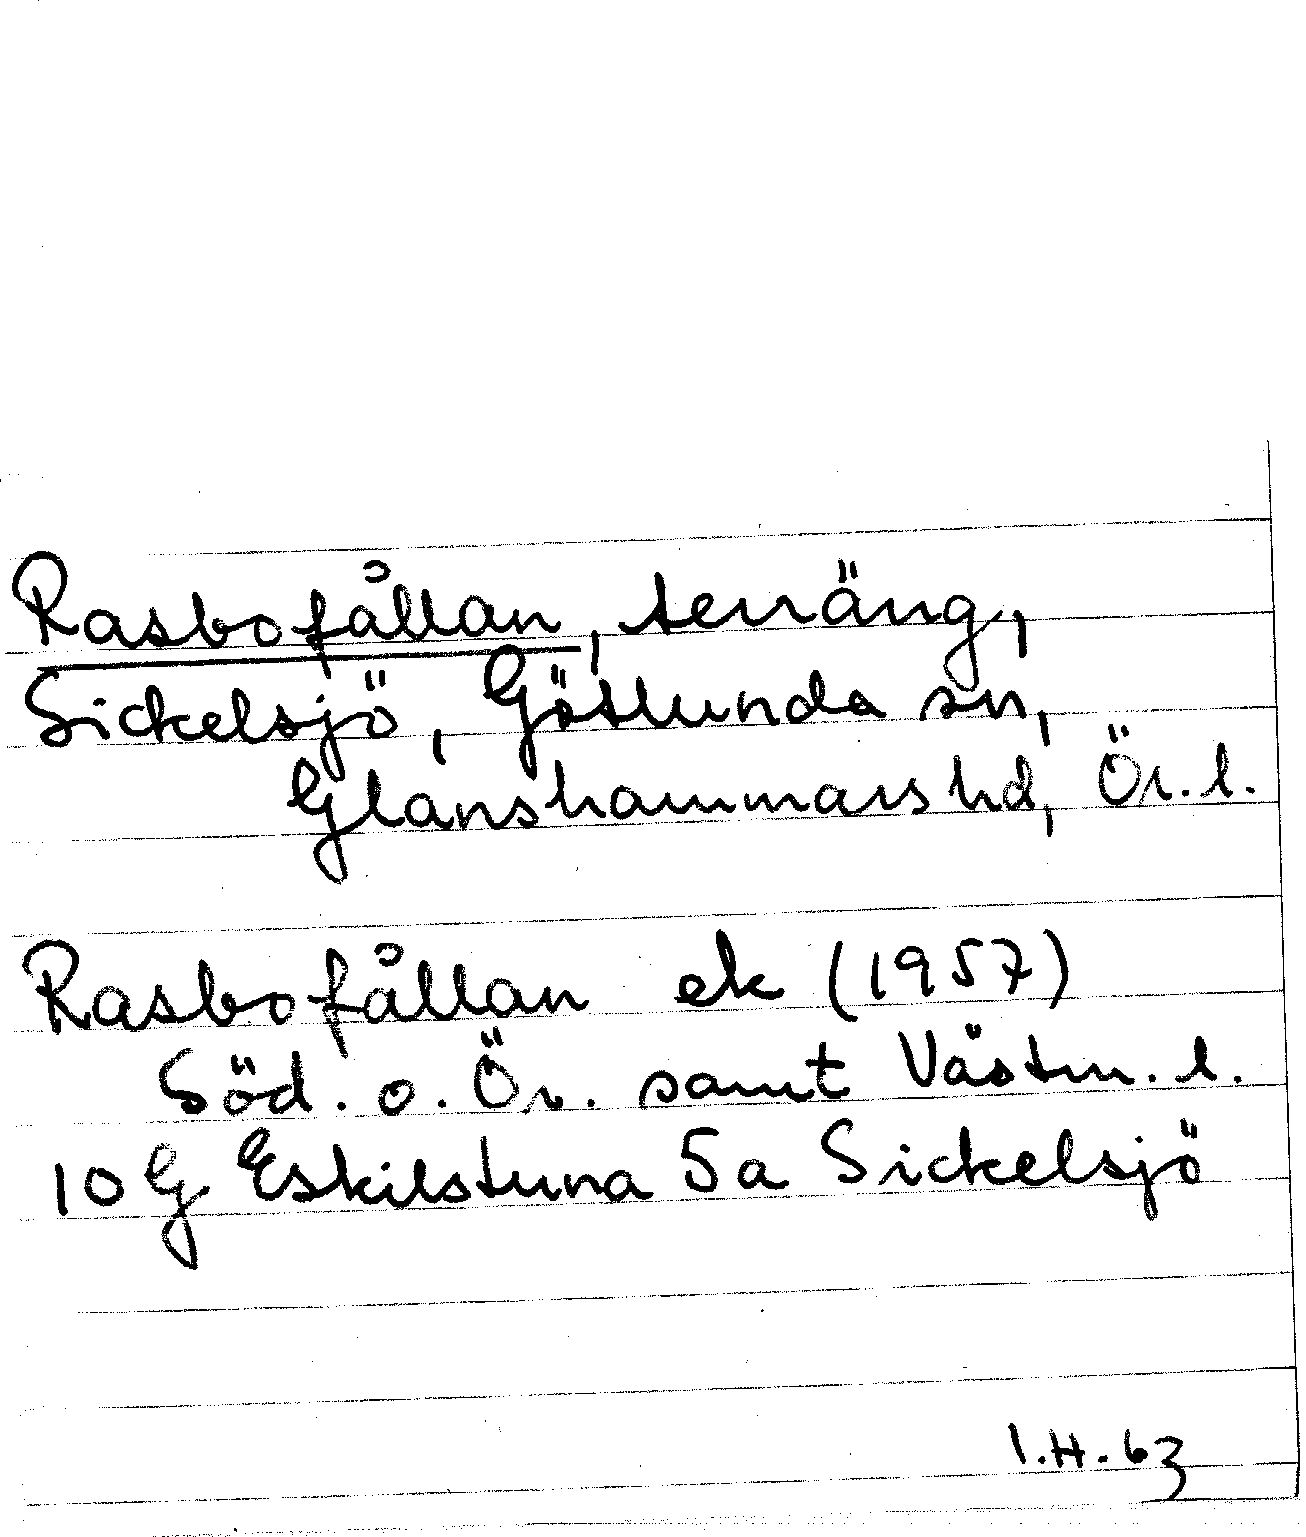 Rasbofållan, terräng,
Sickelsjö, Götlunda sn,
Glanshammars hd, Ör. l.
Rasbofållan ek (1957)
Söd. o. Ör. samt Västm. l.
10 G Eskilstuna 5a Sickelsjö
I.H. 63